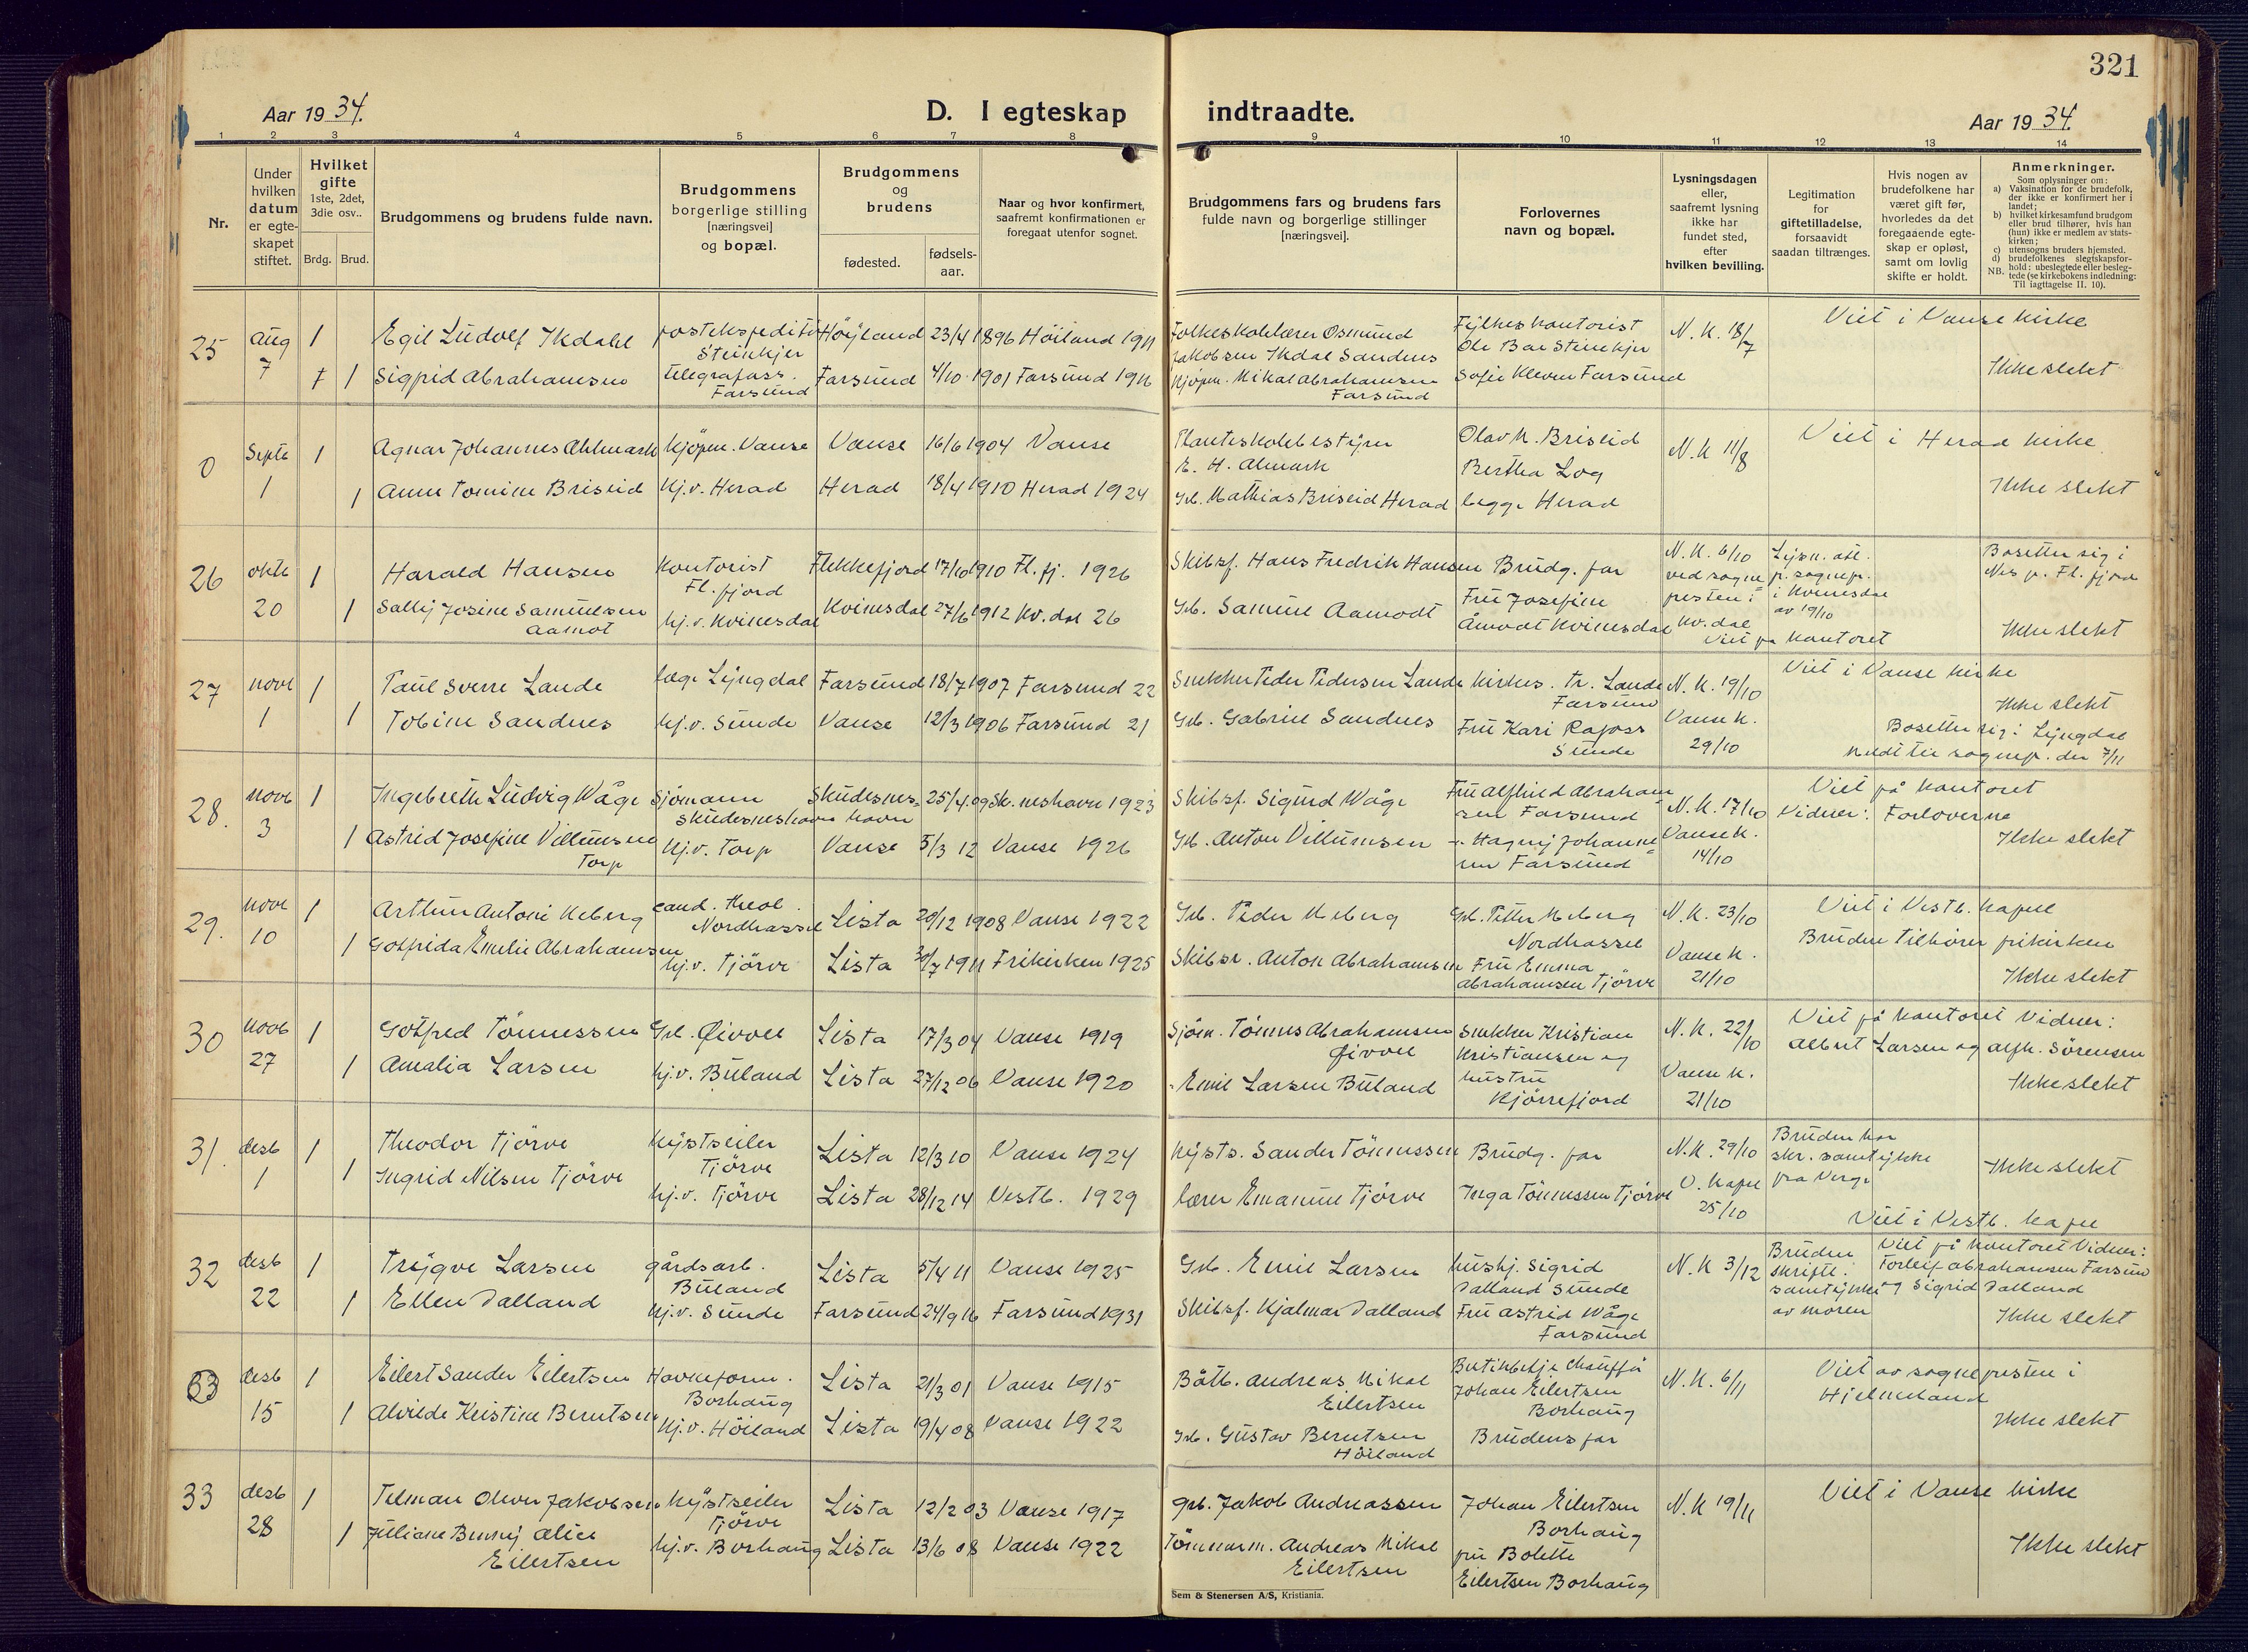 321
Aar 1934.
D. I egteskap indtraadte.
Aar 1934.
1 2 3 4 5 6 7 8 9 10 11 12 13 14
Nr.
Under hvilken datum er egteskapet stiftet.
Hvilket gifte 1ste, 2det, 3die osv..
Brdg. Brud.
Brudgommens og brudens fulde navn.
Brudgommens borgerlige stilling [næringsvei] og bopæl.
Brudgommens og brudens
fødested.
fødsels-aar.
Naar og hvor konfirmert, saafremt konfirmationen er foregaat utenfor sognet.
Brudgommens fars og brudens fars fulde navn og borgerlige stillinger [næringsvei].
Forlovernes navn og bopæl.
Lysningsdagen eller, saafremt lysning ikke har fundet sted, efter hvilken bevilling.
Legitimation for giftetilladelse, forsaavidt saadan tiltrænges.
Hvis nogen av brudefolkene har været gift før, hvorledes da det foregaaende egte-skap er opløst, samt om lovlig skifte er holdt.
Anmerkninger.
Som oplysninger om:
a) Vaksination for de brudefolk, der ikke er konfirmert her i landet;
b) hvilket kirkesamfund brudgom eller brud tilhører, hvis han (hun) ikke er medlem av stats-kirken;
c) utensogns bruders hjemsted.
d) brudefolkenes slegtskapsfor-hold: ubeslegtede eller besleg-tede (se kirkebokens indledning:
NB. Til iagttagelse II. 10).
25 Aug 7 1 Egil Ludolf Skdahl postekspeditör Steinkjer Höyland 23/4 1896 Höiland 1911
Folkeskolelærer Osmund Jakobsen Skdal Sandnes Fylkeskontorist Ole Bae Steinkjer N. K. 18/7 Viet i Vanse kirke
1 Sigrid Abrahamsen telegrafass. Farsund Farsund 4/10 1901 Farsund 1916
Kjöpm. Mikal Abrahamsen Farsund Sofie Kleven Farsund Ikke slekt
0 Septb 1 1 Agnar Johannes Ahlmark Kjöpm. Vanse Vanse 16/6 1904 Vanse
Planteskolebestyrer E. H. Almark Olav K. Briseid N. K 11/8 Viet i Herad kirke.
1 Anne Tomine Briseid Hj.v. Herad Herad 18/4 1910 Herad 1924
Gb. Mathias Briseid Herad Bertha Log begge Herad Ikke slekt
26 oktb 20 1 Harald Hansen Kontorist Fl. fjord Flekkefjord 17/10 1910 Fl. fj. 1926
Skibsf. Hans Fredrik Hansen Brudg. far N. K. 6/10 ved sogne presten i Kv.dal Lysn. att. p. sognepr. i Kvinesdal av 19/10 Bosetter sig i Nes p. Fl. fjord
1 Sally Josine Samuelsen Aamot hj.v. Kvinesdal Kvinesdal 27/6 1912 Kv.dal 26
Gb. Samuel Aamodt Fru Josefine Åmodt Kvinesdal Viet på kontoret Ikke slekt
27 novb 1 1 Paul Sverre Lande læge Lyngdal Farsund 18/7 1907 Farsund 22
Snekker Peder Pedersen Lande Kirkes. tr. Lande Farsund N. K. 19/10 Viet i Vanse kirke Ikke slekt
1 Tobine Sandnes hj.v. Sunde Vanse 12/3 1906 Farsund 21
Gb. Gabriel Sandnes Fru Kari Rafoss Sunde Vanse K. 29/10 Bosetter sig i Lyngdal meldt til sognepr. der 7/11
28. novb 3 1 Ingebreth Ludvig Wåge Sjömann Skudesneshavn Skudesneshavn 25/4 09 Sk.neshavn 1923
Skibsf. Sigurd Wåge Fru Alfhild Abrahamsen Farsund N. K. 17/10 Viet på kontoret Vidner: Forloverne
1 Astrid Josefine Villumsen Torp Hj.v. Torp Vanse 5/3 12 Vanse 1926
Gb. Anton Villumsen - Hagny Johannesen Farsund Vanse K. 14/10 Ikke slekt
29. novb 10 1 Arthur Antoni Meberg cand. theol. Nordhassel Lista 20/12 1908 Vanse 1922
Gb. Peder Meberg Gb. Petter Meberg Nordhassel N. K. 23/10 Viet i Vestb. kapel
1 Gotfrida Emelie Abrahamsen hj.v. Tjörve Lista 30/7 1911 Frikirken 1925
Skibsr. Anton Abrahamsen Fru Emma Abrahamsen Tjörve Vanse K. 21/10 Bruden tilhörer frikirken Ikke slekt
30 novb 27 1 Gotfred Tönnessen Gb. Öivoll Lista 17/3 04 Vanse 1919
Sjöm. Tönnes Abrahamsen Öivoll Snekker Kristian Kristiansen og hustru Kjörrefjord N. K. 22/10 Viet på kontoret Vidner: Albert Larsen og Alfh. Sörensen
1 Amalia Larsen hj.v. Buland Lista 27/12 06 Vanse 1920
- Emil Larsen Buland Vanse K. 21/10 Ikke slekt
31. desb 1 1 Theodor Tjörve Kystseiler Tjörve Lista 12/3 10 Vanse 1924
Kysts. Sander Tönnessen Brudg. far N. K. 29/10 Bruden har skr. samtykke fra Verge Ikke slekt
1 Ingrid Nilsen Tjörve hj.v. Tjörve Lista 28/12 14 Vestb. 1929
lærer Emanuel Tjörve Inga Tönnessen Tjörve V. Kapel 25/10 Viet i Vestb. kapel
32 desb 22 1 Trygve Larsen gårdsarb. Buland Lista 5/4 11 Vanse 1925
Gb. Emil Larsen hushj. Sigrid Dalland Sunde N. K 3/12 Bruden skriftl. samtykke av moren Viet på kontoret Vidner: Torleif Abrahamsen Farsund og Sigrid Dalland
1 Ellen Dalland hj.v. Sunde Farsund 24/9 16 Farsund 1931
Skibsf. Hjalmar Dalland Fru Astrid Wåge Farsund Ikke slekt
33 desb 15 1 Eilert Sander Eilertsen Havneform. Borhaug Lista 21/3 01 Vanse 1915
Båtb. Andreas Mikal Eilertsen Johan Eilertsen Borhaug N. K. 6/11 Viet av sognepresten i Hjelmeland
1 Alvilde Kristine Berntsen hj.v. Höiland Lista 19/4 08 Vanse 1922
Gb. Gustav Berntsen Höiland Brudens far Ikke slekt
33 desb 28 1 Telman Oliver Jakobsen Kystseiler Tjörve Lista 12/2 03 Vanse 1917
gb. Jakob Andreassen Johan Eilertsen Borhaug N. K 19/11 Viet i Vanse kirke
1 Juliane Benny Alice Eilertsen hj.v. Borhaug Lista 13/6 08 Vanse 1922
Tömmerm. Andreas Mikal Eilertsen fru Bolette Eilertsen Borhaug Ikke slekt
Sem & Stenersen A/S, Kristiania.